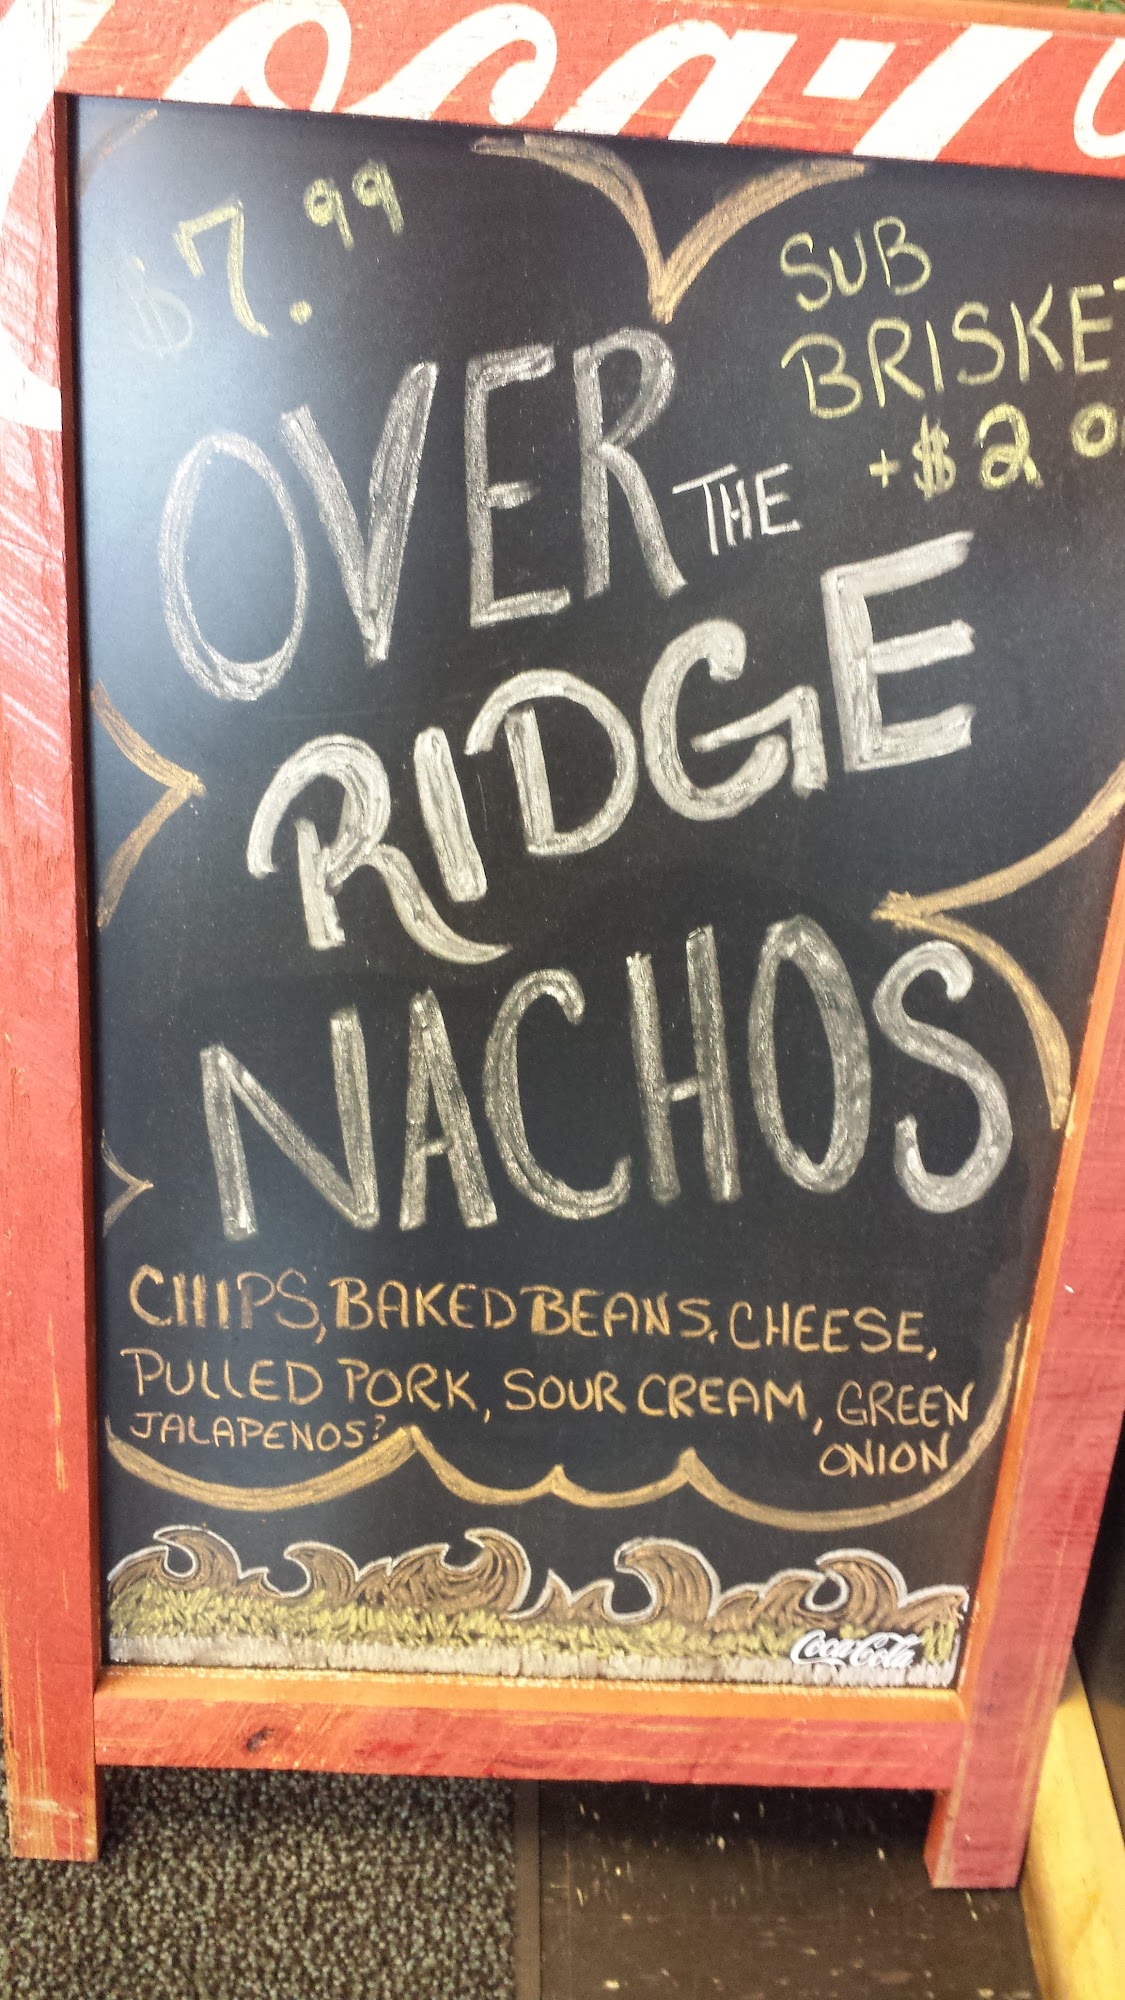 Coca-C
$7.99
SUB
BRISKET
+$2
OVER THE
RIDGE
NACHOS
CHIPS, BAKED BEANS, CHEESE,
PULLED PORK, SOUR CREAM, GREEN
ONION
JALAPENOS?
Coca-Cola